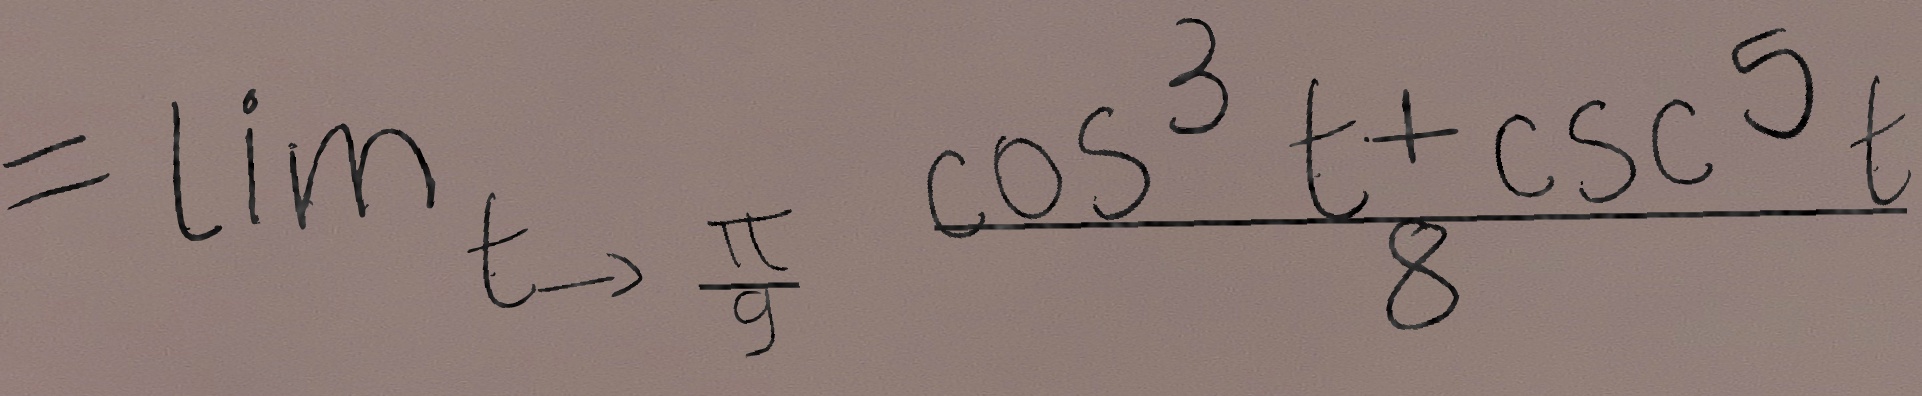 = \lim_{t \to \frac{\pi}{9}} \frac{\cos^3 t + \csc^5 t}{8}